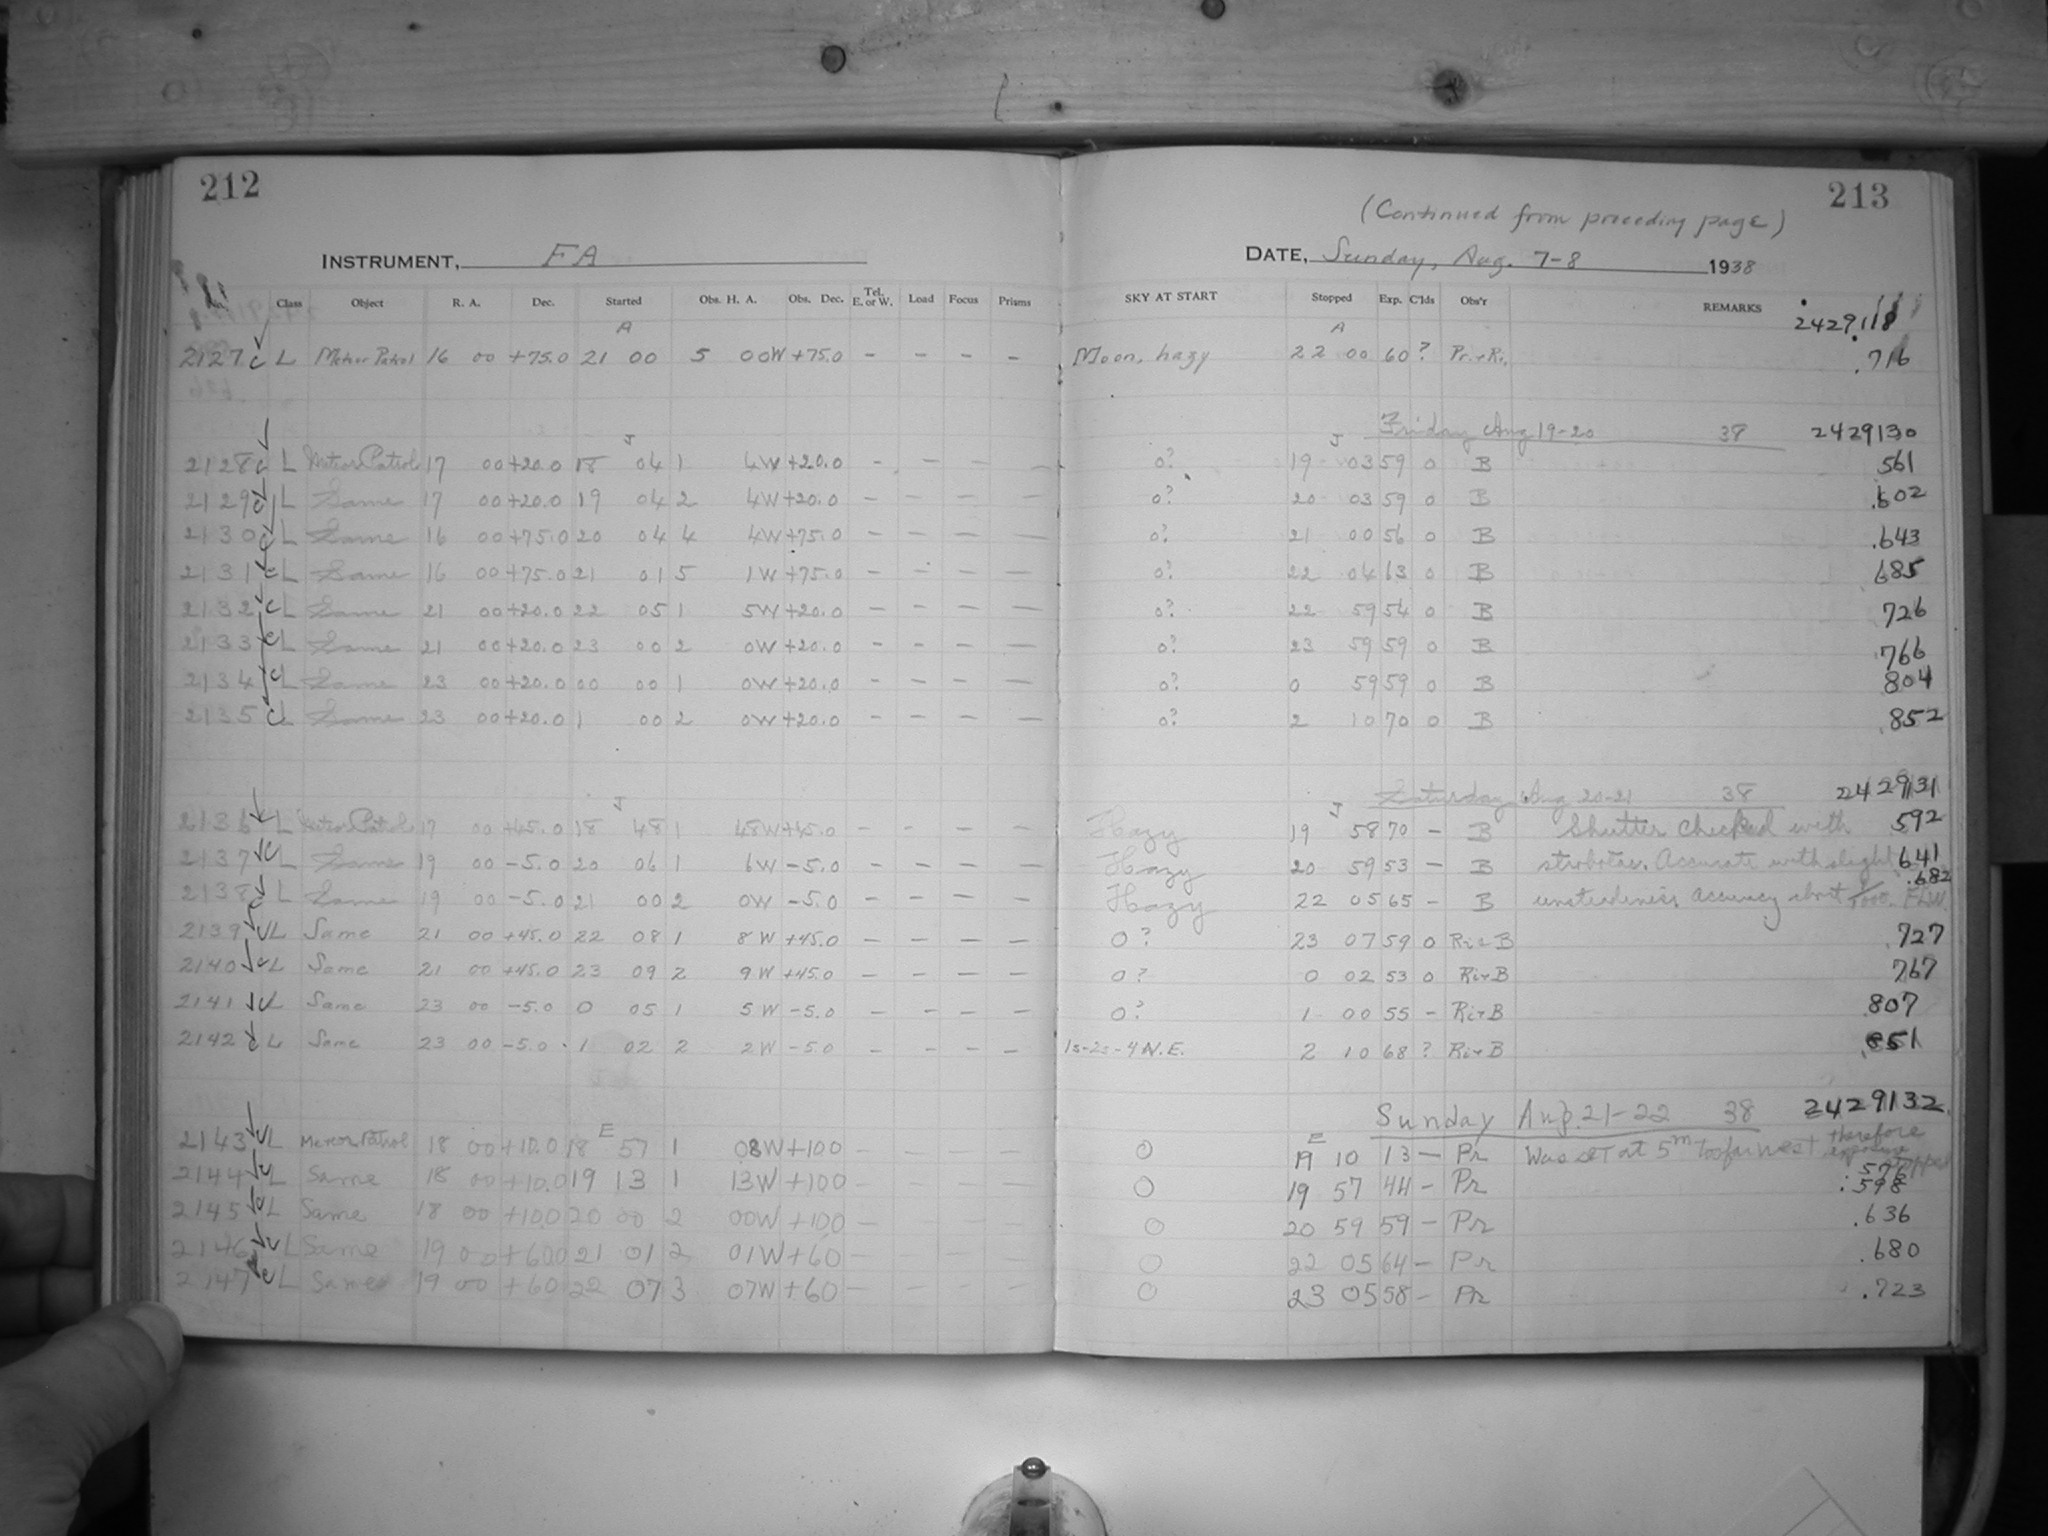 212
213
(Continued from preceding page)
INSTRUMENT, FA
DATE, Sunday, Aug. 7-8 1938
No. Class Object R. A. Dec. Started Obs. H. A. Obs. Dec. Tel. E. or W. Load Focus Prisms SKY AT START Stopped Exp. C'lds Obs'r REMARKS
A A 2429118
2127 c L Meteor Patrol 16 00 +75.0 21 00 5 00W +75.0 - - - - Moon, hazy 22 00 60 ? Pr.+Ri. .716
J J Friday Aug 19-20 38 2429130
2128 c L Meteor Patrol 17 00 +20.0 18 04 1 4W +20.0 - - - - 0? 19 03 59 0 B 561
2129 c L Same 17 00 +20.0 19 04 2 4W +20.0 - - - - 0? 20 03 59 0 B .602
2130 c L Same 16 00 +75.0 20 04 4 4W +75.0 - - - - 0? 21 00 56 0 B .643
2131 c L Same 16 00 +75.0 21 01 5 1W +75.0 - - - - 0? 22 04 63 0 B 685
2132 c L Same 21 00 +20.0 22 05 1 5W +20.0 - - - - 0? 22 59 54 0 B 726
2133 c L Same 21 00 +20.0 23 00 2 0W +20.0 - - - - 0? 23 59 59 0 B 766
2134 c L Same 23 00 +20.0 00 00 1 0W +20.0 - - - - 0? 0 59 59 0 B 804
2135 c L Same 23 00 +20.0 1 00 2 0W +20.0 - - - - 0? 2 10 70 0 B .852
J J Saturday Aug 20-21 38 2429131
2136 L Meteor Patrol 17 00 +45.0 18 48 1 48W +45.0 - - - - Hazy 19 58 70 - B Shutter checked with 592
2137 c L Same 19 00 -5.0 20 06 1 6W -5.0 - - - - Hazy 20 59 53 - B strobotac. Accurate with slight 641
2138 c L Same 19 00 -5.0 21 00 2 0W -5.0 - - - - Hazy 22 05 65 - B unsteadiness. Accuracy about FLW. .682
2139 c L Same 21 00 +45.0 22 08 1 8W +45.0 - - - - 0? 23 07 59 0 Ri+B .727
2140 c L Same 21 00 +45.0 23 09 2 9W +45.0 - - - - 0? 0 02 53 0 Ri+B 767
2141 c L Same 23 00 -5.0 0 05 1 5W -5.0 - - - - 0? 1 00 55 - Ri+B 807
2142 c L Same 23 00 -5.0 1 02 2 2W -5.0 - - - - 1s-2s-4 N.E. 2 10 68 ? Ri+B .851
E E Sunday Aug. 21-22 38 2429132
2143 c L Meteor Patrol 18 00 +10.0 18 57 1 08W +100 - - - - 0 19 10 13 - Pr Was set at 5m too far west therefore exposure stopped 576
2144 c L Same 18 00 +10.0 19 13 1 13W +100 - - - - 0 19 57 44 - Pr .598
2145 c L Same 18 00 +10.0 20 00 2 00W +100 - - - - 0 20 59 59 - Pr .636
2146 c L Same 19 00 +60.0 21 01 2 01W +60 - - - - 0 22 05 64 - Pr .680
2147 c L Same 19 00 +60 22 07 3 07W +60 - - - - 0 23 05 58 - Pr .723